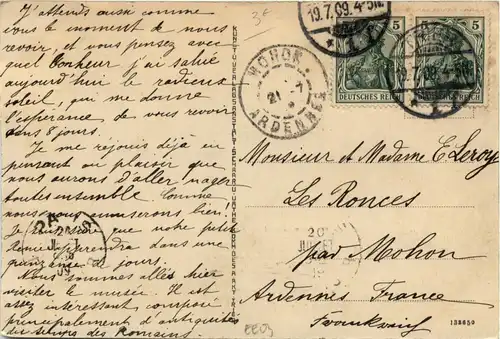 J'attends aussi comme
vous le moment de nous
revoir, et vous pensez avec
quel bonheur j'ai salué
aujourd'hui le radieux
soleil, qui me donne
l'espérance de vous revoir
dans 8 jours.
Je me réjouis déjà en
pensant au plaisir que
nous aurons d'aller nager
toutes ensemble. Comme
nous nous amuserons bien!
Je pense que notre petite
apprendra dans une
quinzaine de jours.
Nous sommes allés hier
visiter le musée. Il est
assez intéressant, composé
principalement d'antiquités
du temps des Romains.
3e
19.7.09. 4-5N.
MOHON
21 -7
ARDENNES
5 5
DEUTSCHES REICH
19.7.09. 4-5
Monsieur et Madame E. Leroy
Les Ronces
par Mohon
Ardennes France
Frankreich
20
JUIL
EE03
138850